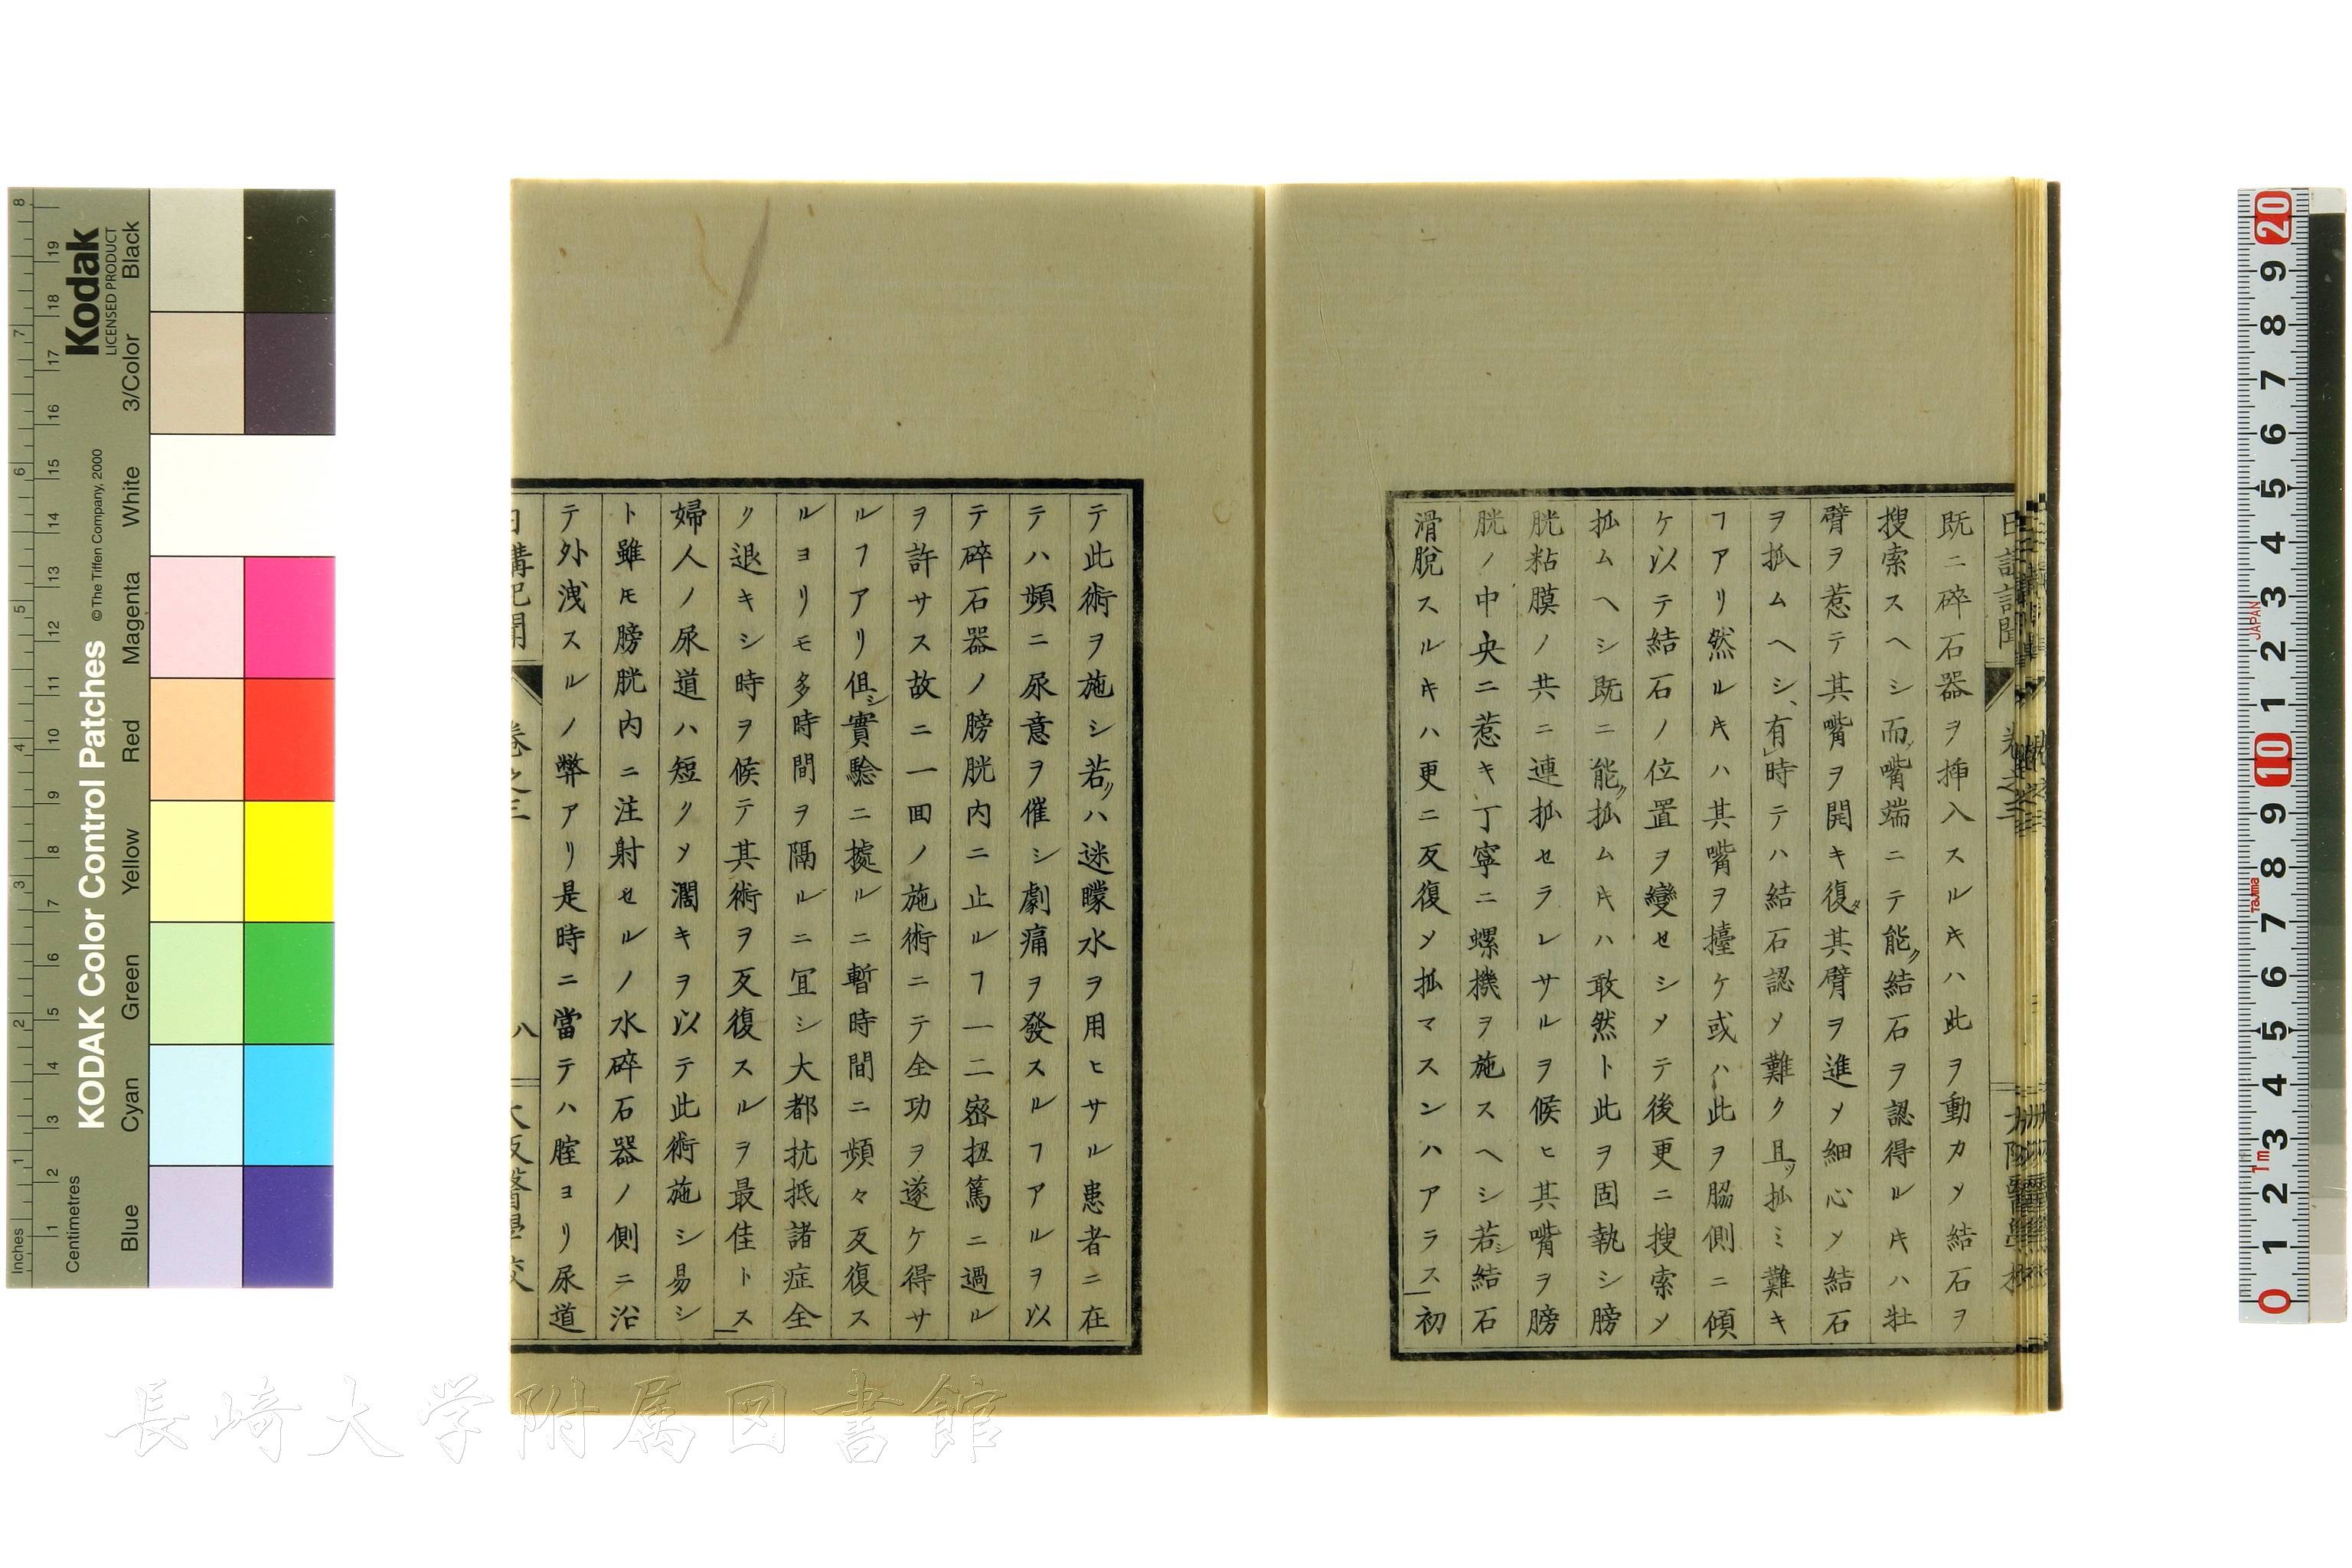 既ニ碎石器ヲ挿入スルキハ此ヲ動カメ結石ヲ
搜索スヘシ而〆嘴端ニテ能ク結石ヲ認得ルキハ牡
臂ヲ惹テ其嘴ヲ開キ復タ其臂ヲ進メ細心メ結石
ヲ抓ムヘシ、有時テハ結石認メ難ク且ツ抓ミ難キ
ヿアリ然ルキハ其嘴ヲ擡ケ或ハ此ヲ脇側ニ傾
ケ以テ結石ノ位置ヲ變セシメテ後更ニ搜索メ
抓ムヘシ既ニ能ク抓ムキハ敢然ト此ヲ固執シ膀
胱粘膜ノ共ニ連抓セラレサルヲ候ヒ其嘴ヲ膀
胱ノ中央ニ惹キ丁寧ニ螺機ヲ施スヘシ若シ結石
滑脫スルキハ更ニ反復メ抓マスンハアラス初
テ此術ヲ施シ若クハ迷矇水ヲ用ヒサル患者ニ在
テハ頻ニ尿意ヲ催シ劇痛ヲ發スルヿアルヲ以
テ碎石器ノ膀胱内ニ止ルヿ一二密扭篤ニ過ル
ヲ許サス故ニ一回ノ施術ニテ全功ヲ遂ケ得サ
ルヿアリ但シ實驗ニ據ルニ暫時間ニ頻々反復ス
ルヨリモ多時間ヲ隔ルニ冝シ大都抗抵諸症全
ク退キシ時ヲ候テ其術ヲ反復スルヲ最佳トス
婦人ノ尿道ハ短クメ濶キヲ以テ此術施シ易シ
ト雖モ膀胱内ニ注射セルノ水碎石器ノ側ニ沿
テ外洩スルノ弊アリ是時ニ當テハ腟ヨリ尿道
日講記聞 卷之三 八 大阪醫學校
KODAK Color Control Patches
© The Tiffen Company, 2000
Kodak
LICENSED PRODUCT
Inches
Centimetres
Blue
Cyan
Green
Yellow
Red
Magenta
White
3/Color
Black
JAPAN
Tajima
1m
長崎大学附属図書館